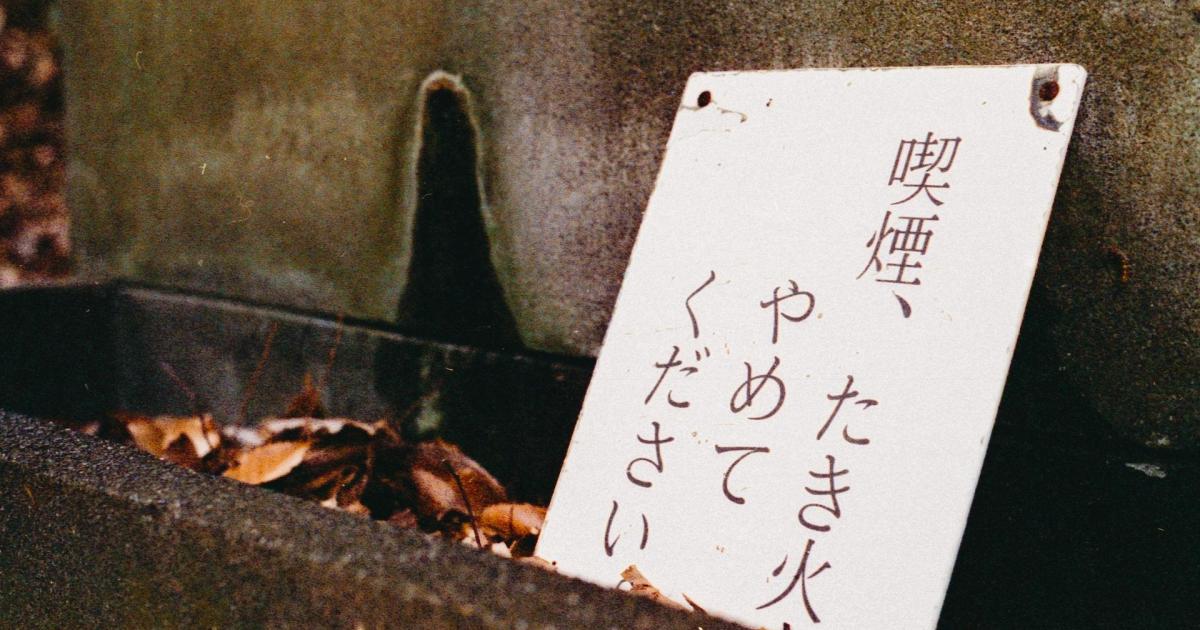 喫煙、
たき火
やめて
ください。